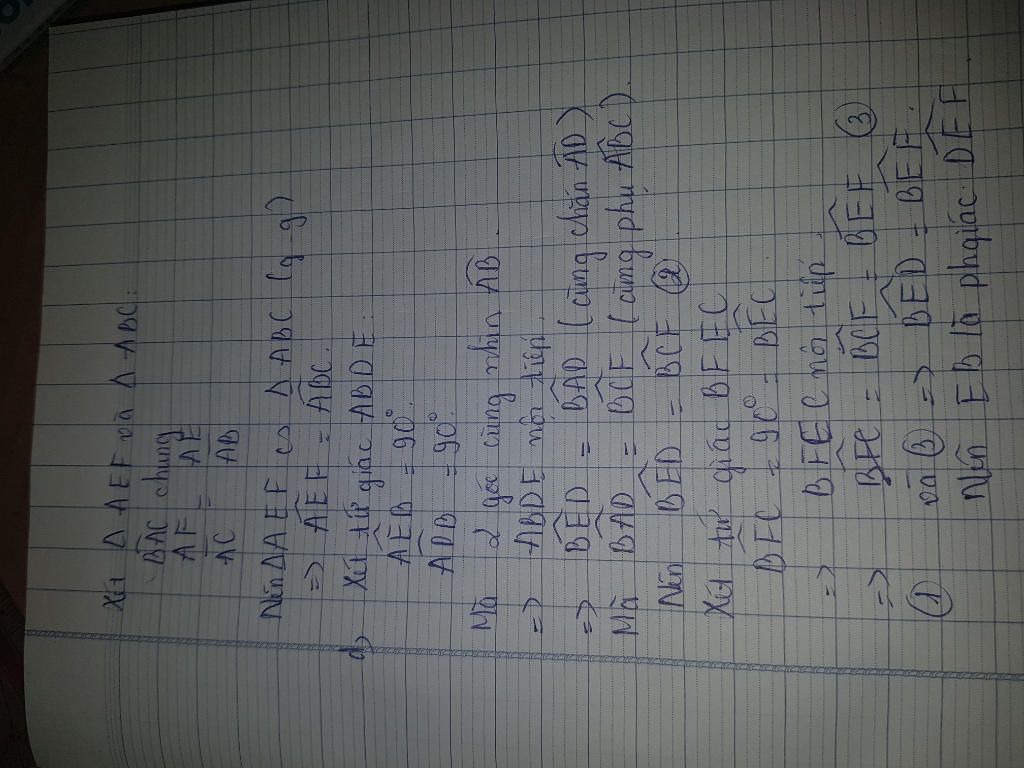 Xét Δ AEF và Δ ABC:
B̂AC chung
AF/AC = AE/AB
Nên Δ AEF ∽ Δ ABC (g-g)
=> ÂEF = ÂBC.
d) Xét tứ giác ABDE:
ÂEB = 90°
ÂDB = 90°.
Mà 2 góc cùng nhìn ÂB.
=> ABDE nội tiếp.
=> B̂ED = B̂AD (cùng chắn ÂD)
Mà B̂AD = B̂CF (cùng phụ ÂBC).
Nên B̂ED = B̂CF ②
Xét tứ giác BFEC
B̂FC = 90° = B̂EC
=> BFEC nội tiếp.
=> B̂CF = B̂EF ③
① và ③ => B̂ED = B̂EF.
Nên EB là phgiác D̂EF.